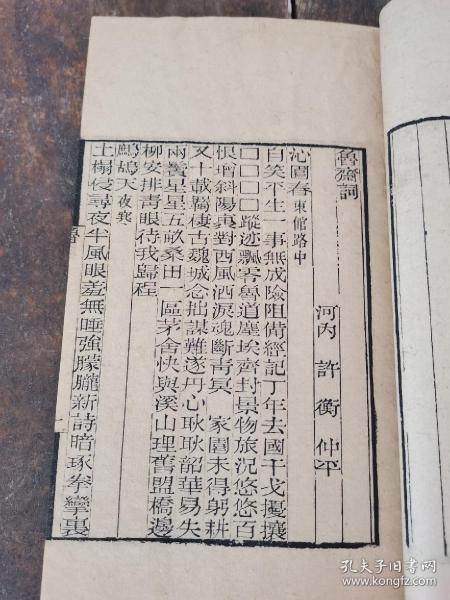 魯齋詞
河內 許衡 仲平
沁園春 東館路中
自笑平生一事無成險阻備經記丁年去國干戈擾攘
□□□□蹤迹飄零魯道塵埃齊封景物旅況悠悠百
恨增斜陽裏對西風洒淚魂斷青冥 家園未得躬耕
又十載羈棲古魏城念拙謀難遂丹心耿耿韶華易失
兩鬢星星五畝桑田一區茅舍快與溪山理舊盟橋邊
柳安排青眼待我歸程
鷓鴣天 夜寒
土榻侵尋夜半風眼羞無睡強朦朧新詩暗琢拳攣裏
孔夫子旧书网
www.kongfz.com